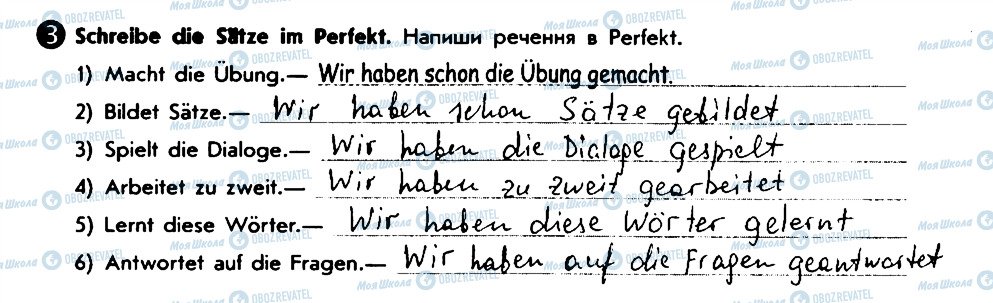 3 Schreibe die Sätze im Perfekt. Напиши речення в Perfekt.
1) Macht die Übung.— Wir haben schon die Übung gemacht.
2) Bildet Sätze.— Wir haben schon Sätze gebildet
3) Spielt die Dialoge.— Wir haben die Dialoge gespielt
4) Arbeitet zu zweit.— Wir haben zu zweit gearbeitet
5) Lernt diese Wörter.— Wir haben diese Wörter gelernt
6) Antwortet auf die Fragen.— Wir haben auf die Fragen geantwortet